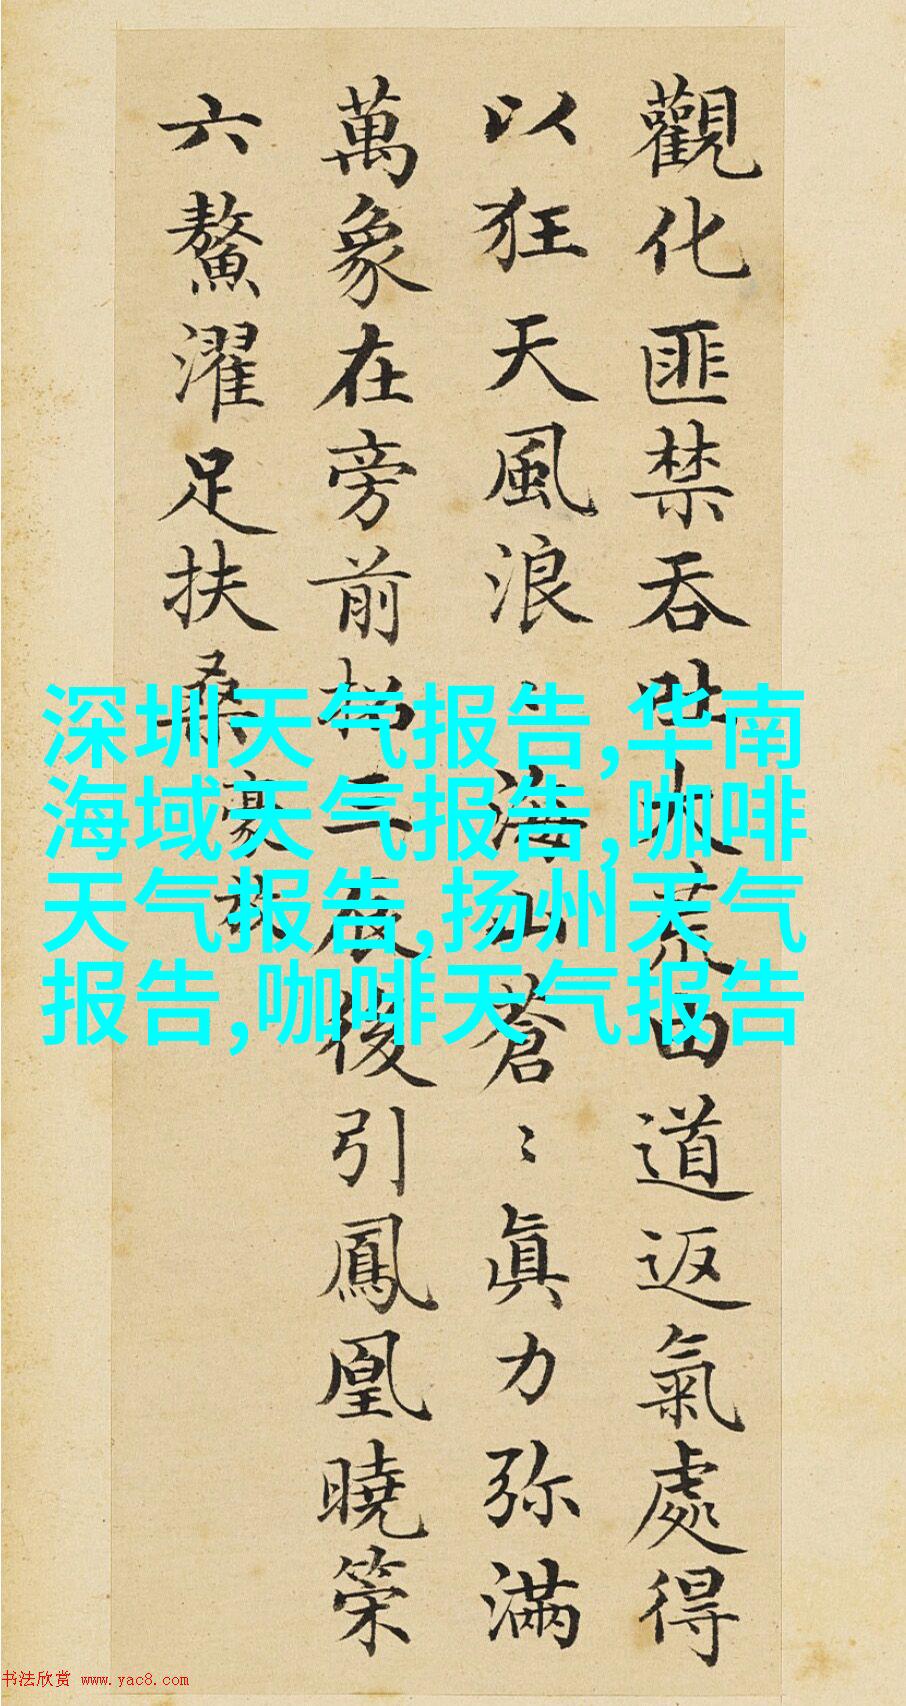 觀化匪禁吞吐大荒由道返氣處得
以狂天風浪〻海山蒼〻眞力弥滿
萬象在旁前招三辰後引鳳凰曉策
六鰲濯足扶桑
豪放
深圳天气报告,华南
海域天气报告,咖啡
天气报告,扬州天气
报告,咖啡天气报告
书法欣赏 www.yac8.com